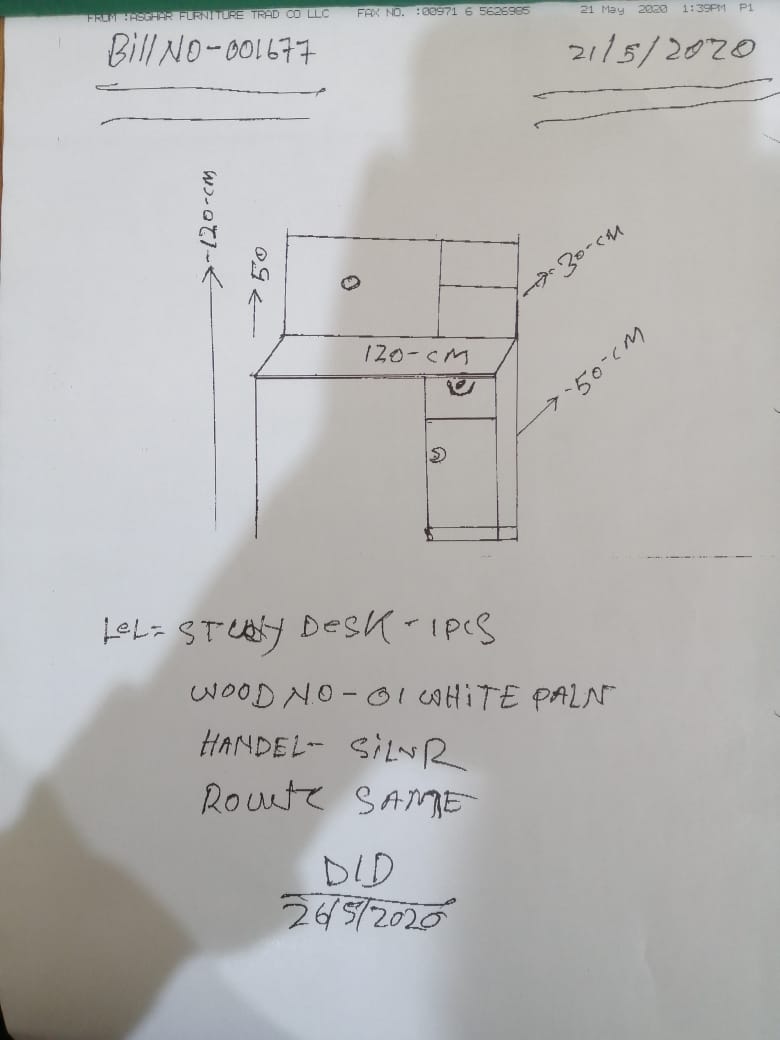 FROM :ASGHAR FURNITURE TRAD CO LLC FAX NO. :00971 6 5626985 21 May 2020 1:39PM P1
Bill NO-001677 21/5/2020
-120-CM
50
-30-CM
120-CM
-50-CM
LeL= STUDY DESK - 1PCS
WOOD NO-01 WHITE PALN
HANDEL- SILVR
SAME
D/D
26/5/2020